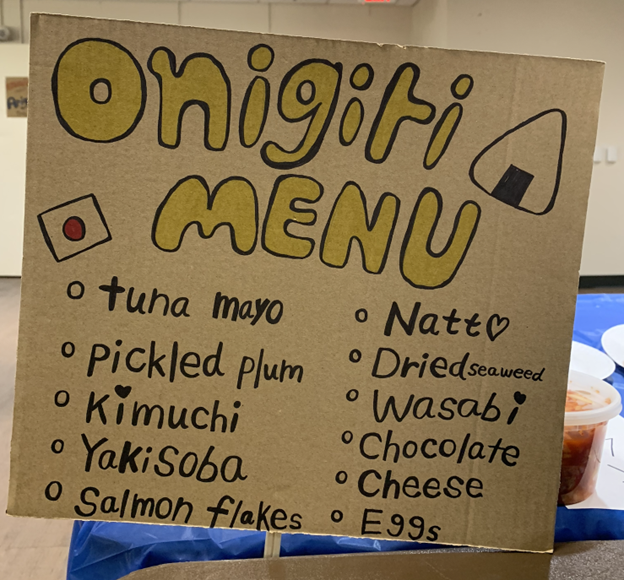 Onigiri
MENU
tuna mayo
Pickled plum
Kimuchi
Yakisoba
Salmon flakes
Natt♡
Dried seaweed
Wasabi
Chocolate
Cheese
Eggs